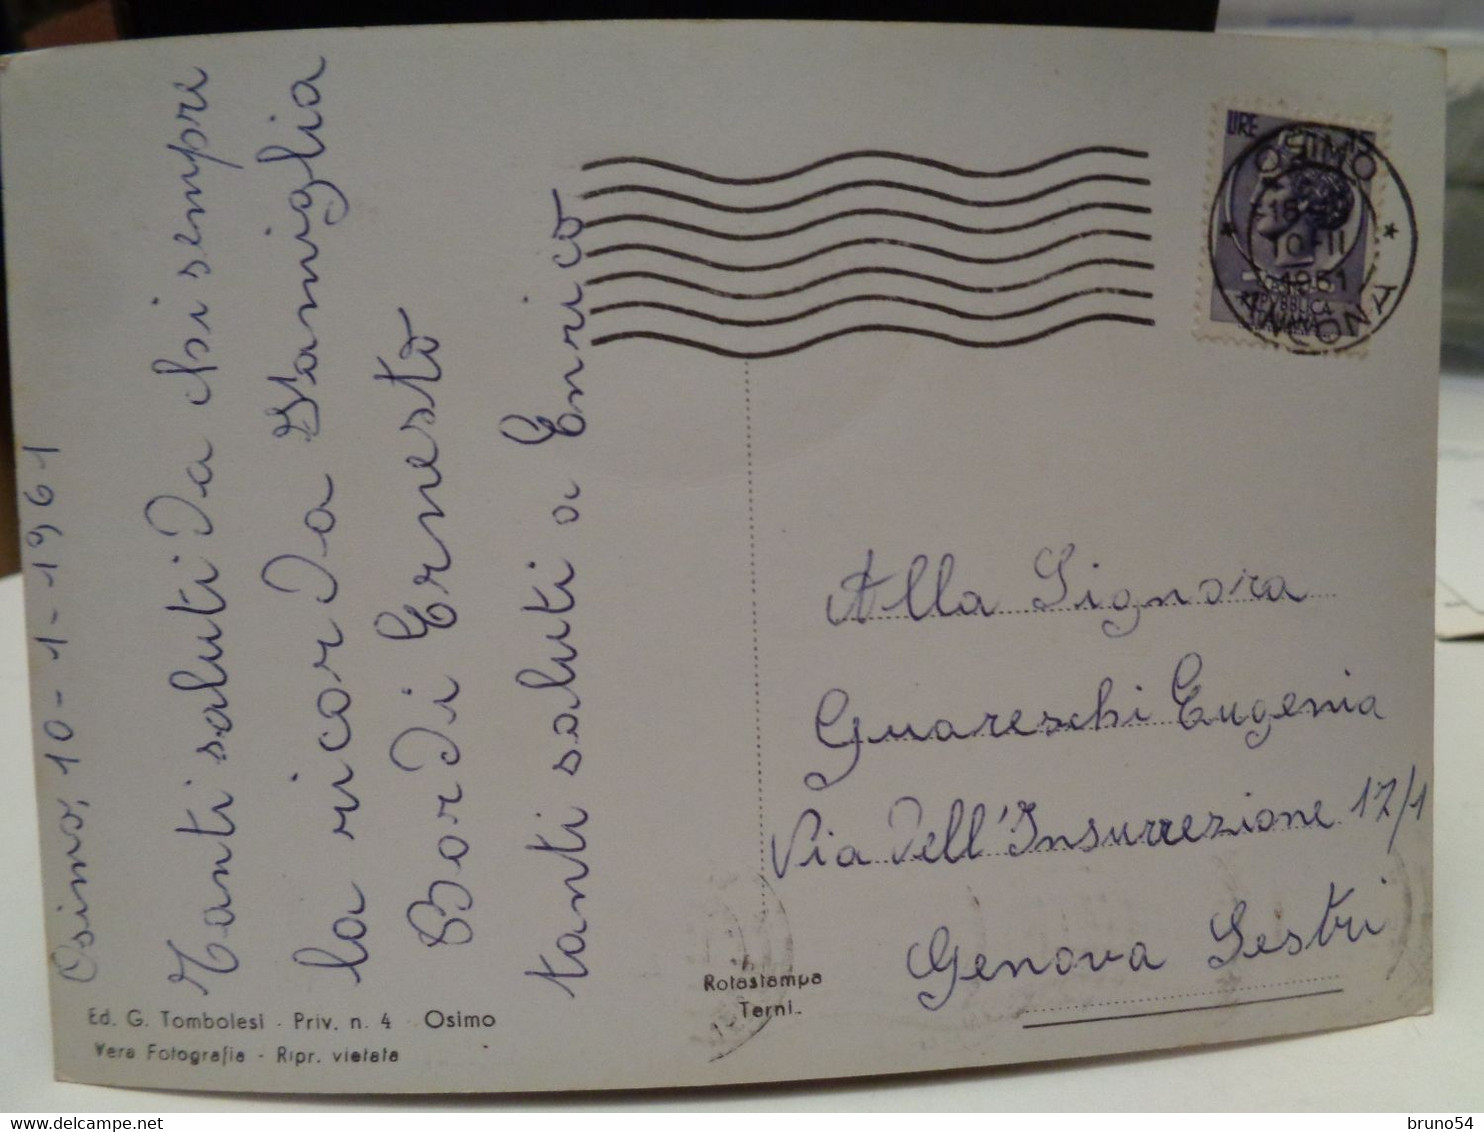 Osimo, 10-1-1961
Tanti saluti Da chi sempre
la ricorda Famiglia
Bordi Ernesto
tanti saluti a Enrico
Ed. G. Tombolesi - Priv. n. 4 - Osimo
Vera Fotografia - Ripr. vietata
Rotastampa
Terni.
LIRE 15
OSIMO
10-II
1961
ANCONA
REPVBBLICA
ITALIANA
Alla Signora
Guareschi Eugenia
Via Dell'Insurrezione 17/1
Genova Sestri
bruno54